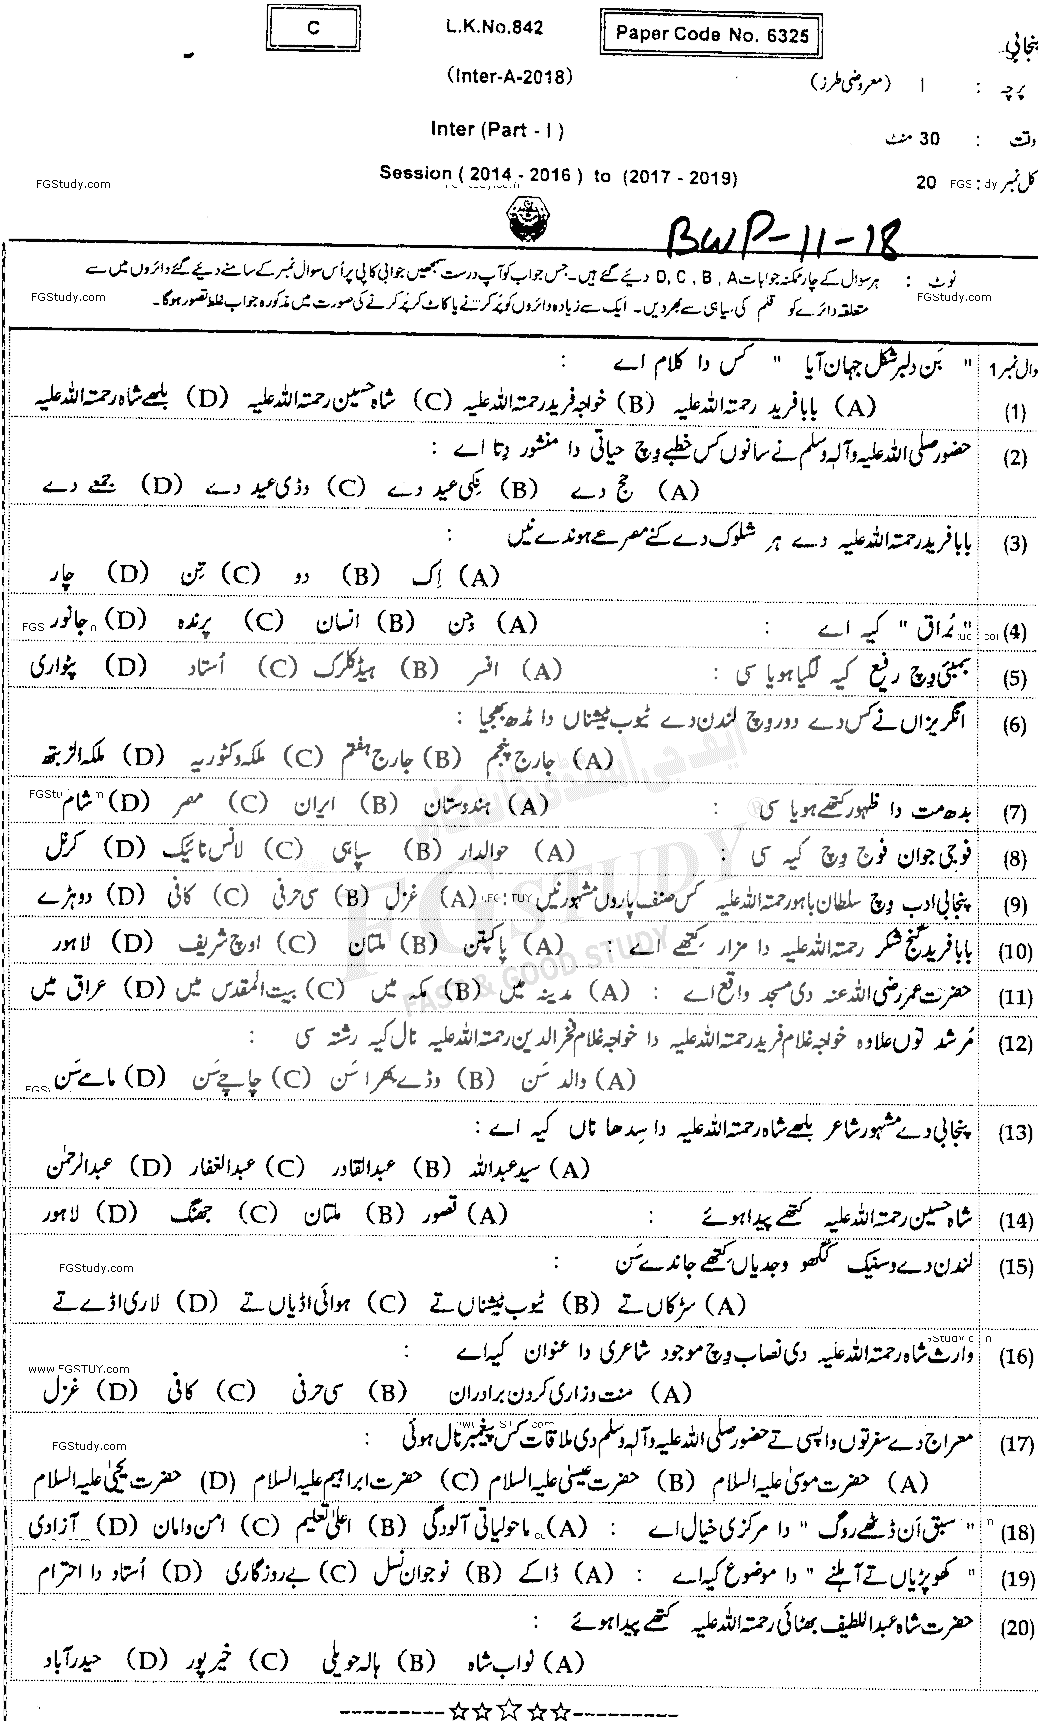 C
L.K.No.842
Paper Code No. 6325
پنجابی
(Inter-A-2018)
پرچہ : ا (معروضی طرز)
Inter (Part - I)
وقت : 30 منٹ
Session ( 2014 - 2016 ) to (2017 - 2019)
کل نمبر : 20
FGStudy.com
BWP-11-18
نوٹ : ہر سوال کے چار ممکنہ جوابات D, C, B, A دیئے گئے ہیں۔ جس جواب کو آپ درست سمجھیں جوابی کاپی پر اُس سوال نمبر کے سامنے دیئے گئے دائروں میں سے
متعلقہ دائرے کو قلم کی سیاہی سے بھر دیں۔ ایک سے زیادہ دائروں کو پُر کرنے یا کاٹ کر پُر کرنے کی صورت میں مذکورہ جواب غلط تصور ہوگا۔
FGStudy.com
FGStudy.com
وال نمبر 1 " بَن دلبر شکل جہان آیا " کس دا کلام اے :
(1) (A) بابا فرید رحمتہ اللہ علیہ (B) خواجہ فرید رحمتہ اللہ علیہ (C) شاہ حسین رحمتہ اللہ علیہ (D) بلھے شاہ رحمتہ اللہ علیہ
(2) حضور صلی اللہ علیہ وآلہ وسلم نے سانوں کس خطبے وچ حیاتی دا منشور دِتا اے :
(A) حج دے (B) نِکی عید دے (C) وڈی عید دے (D) جمعے دے
(3) بابا فرید رحمتہ اللہ علیہ دے ہر شلوک دے کنے مصرعے ہوندے نیں :
(A) اِک (B) دو (C) تِن (D) چار
(4) " بُراق " کیہ اے : (A) جِن (B) انسان (C) پرندہ (D) جانور
(5) بمبئی وچ رفیع کیہ لگیا ہویا سی : (A) افسر (B) ہیڈ کلرک (C) اُستاد (D) پٹواری
(6) انگریزاں نے کس دے دور وچ لندن دے ٹیوب ٹیشناں دا مڈھ بھجیا :
(A) جارج پنجم (B) جارج ہفتم (C) ملکہ وکٹوریہ (D) ملکہ الزبتھ
(7) بدھ مت دا ظہور کتھے ہویا سی : (A) ہندوستان (B) ایران (C) مصر (D) شام
(8) فوجی جوان فوج وچ کیہ سی : (A) حوالدار (B) سپاہی (C) لانس نائیک (D) کرنل
(9) پنجابی ادب وچ سلطان باہو رحمتہ اللہ علیہ کس صنف پاروں مشہور نیں : (A) غزل (B) سی حرفی (C) کافی (D) دوہڑے
(10) بابا فرید گنج شکر رحمتہ اللہ علیہ دا مزار کتھے اے : (A) پاکپتن (B) ملتان (C) اوچ شریف (D) لاہور
(11) حضرت عمر رضی اللہ عنہ دی مسجد واقع اے : (A) مدینہ میں (B) مکہ میں (C) بیت المقدس میں (D) عراق میں
(12) مُرشد توں علاوہ خواجہ غلام فرید رحمتہ اللہ علیہ دا خواجہ غلام فخر الدین رحمتہ اللہ علیہ نال کیہ رشتہ سی :
(A) والد سَن (B) وڈے بھرا سَن (C) چاچے سَن (D) مامے سَن
(13) پنجابی دے مشہور شاعر بلھے شاہ رحمتہ اللہ علیہ دا سِدھا ناں کیہ اے :
(A) سید عبداللہ (B) عبدالقادر (C) عبدالغفار (D) عبدالرحمٰن
(14) شاہ حسین رحمتہ اللہ علیہ کتھے پیدا ہوئے : (A) قصور (B) ملتان (C) جھنگ (D) لاہور
(15) لندن دے وسنیک گھگھو وجدیاں کتھے جاندے سَن :
FGStudy.com
(A) سڑکاں تے (B) ٹیوب ٹیشناں تے (C) ہوائی اڈیاں تے (D) لاری اڈے تے
(16) وارث شاہ رحمتہ اللہ علیہ دی نصاب وچ موجود شاعری دا عنوان کیہ اے :
www.FGSTUY.com
(A) منت وزاری کردن برادران (B) سی حرفی (C) کافی (D) غزل
(17) معراج دے سفر توں واپسی تے حضور صلی اللہ علیہ وآلہ وسلم دی ملاقات کس پیغمبر نال ہوئی :
FGStudy.com
(A) حضرت موسیٰ علیہ السلام (B) حضرت عیسیٰ علیہ السلام (C) حضرت ابراہیم علیہ السلام (D) حضرت یحییٰ علیہ السلام
(18) " سبق اَن ڈٹھے روگ " دا مرکزی خیال اے : (A) ماحولیاتی آلودگی (B) اعلیٰ تعلیم (C) امن وامان (D) آزادی
(19) " کھوپڑیاں تے آہلنے " دا موضوع کیہ اے : (A) ڈاکے (B) نوجوان نسل (C) بے روزگاری (D) اُستاد دا احترام
(20) حضرت شاہ عبداللطیف بھٹائی رحمتہ اللہ علیہ کتھے پیدا ہوئے :
(A) نواب شاہ (B) ہالہ حویلی (C) خیرپور (D) حیدرآباد